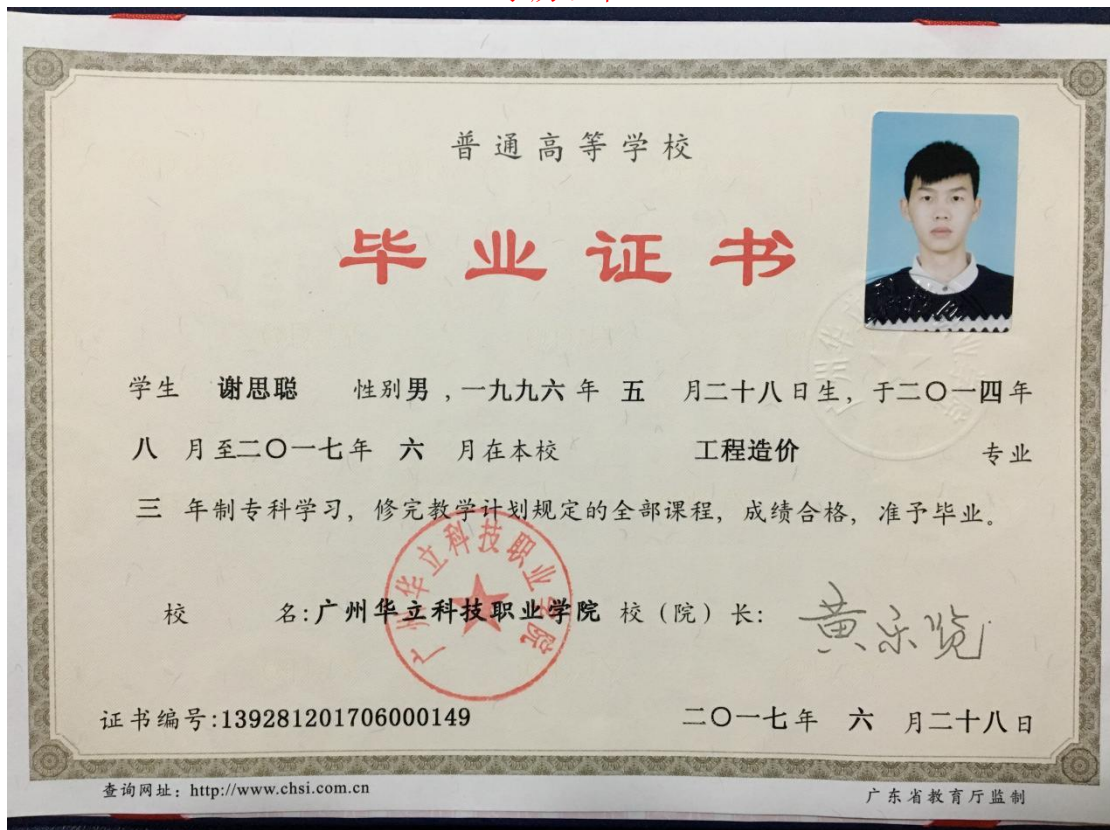 普通高等学校
毕业证书
学生 谢思聪 性别男，一九九六年 五 月二十八日生，于二〇一四年
八 月至二〇一七年 六 月在本校 工程造价 专业
三 年制专科学习，修完教学计划规定的全部课程，成绩合格，准予毕业。
广州华立科技职业学院
校 名:广州华立科技职业学院 校（院）长: 黄乐览
证书编号:139281201706000149 二〇一七年 六 月二十八日
查询网址：http://www.chsi.com.cn 广东省教育厅监制